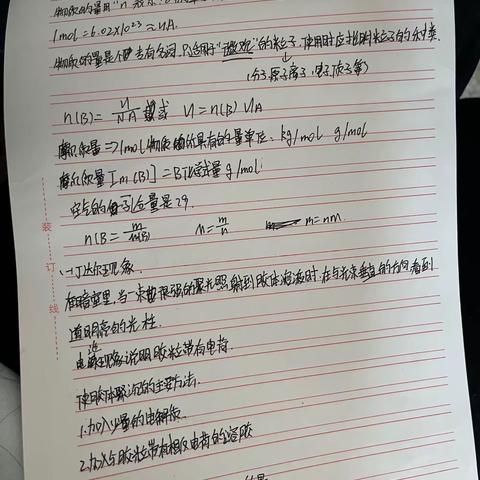 物质的量用"n"表示
1mol=6.02×10²³≈NA.
物质的量是个专有名词,只适用于"微观"的粒子,使用时应指明粒子的种类.
(分子.原子离子.电子.质子等)
n(B)=N/NA 或 N=n(B) NA
摩尔质量⇒1mol物质所具有的质量单位:kg/mol g/mol
摩尔质量[m(B)]=B化学式量g/mol
空气的分子量是29.
n(B=m/m(B) n=m/n m=nm.
丁达尔现象.
在暗室里,当一束很强的聚光照射到胶体溶液时,在与光束垂直的方向看到
道明亮的光柱.
电泳现象说明胶粒带有电荷.
使胶体聚沉的主要方法.
1.加入少量的电解质.
2.加入与胶粒带有相反电荷的溶胶
装
订
线